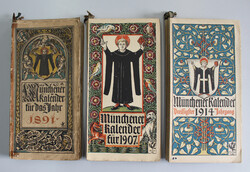 Münchener
Kalender
für das Jahr
1891
Münchener
Kalender
für 1907
Münchener Kalender
1914
Dreißigster Jahrgang